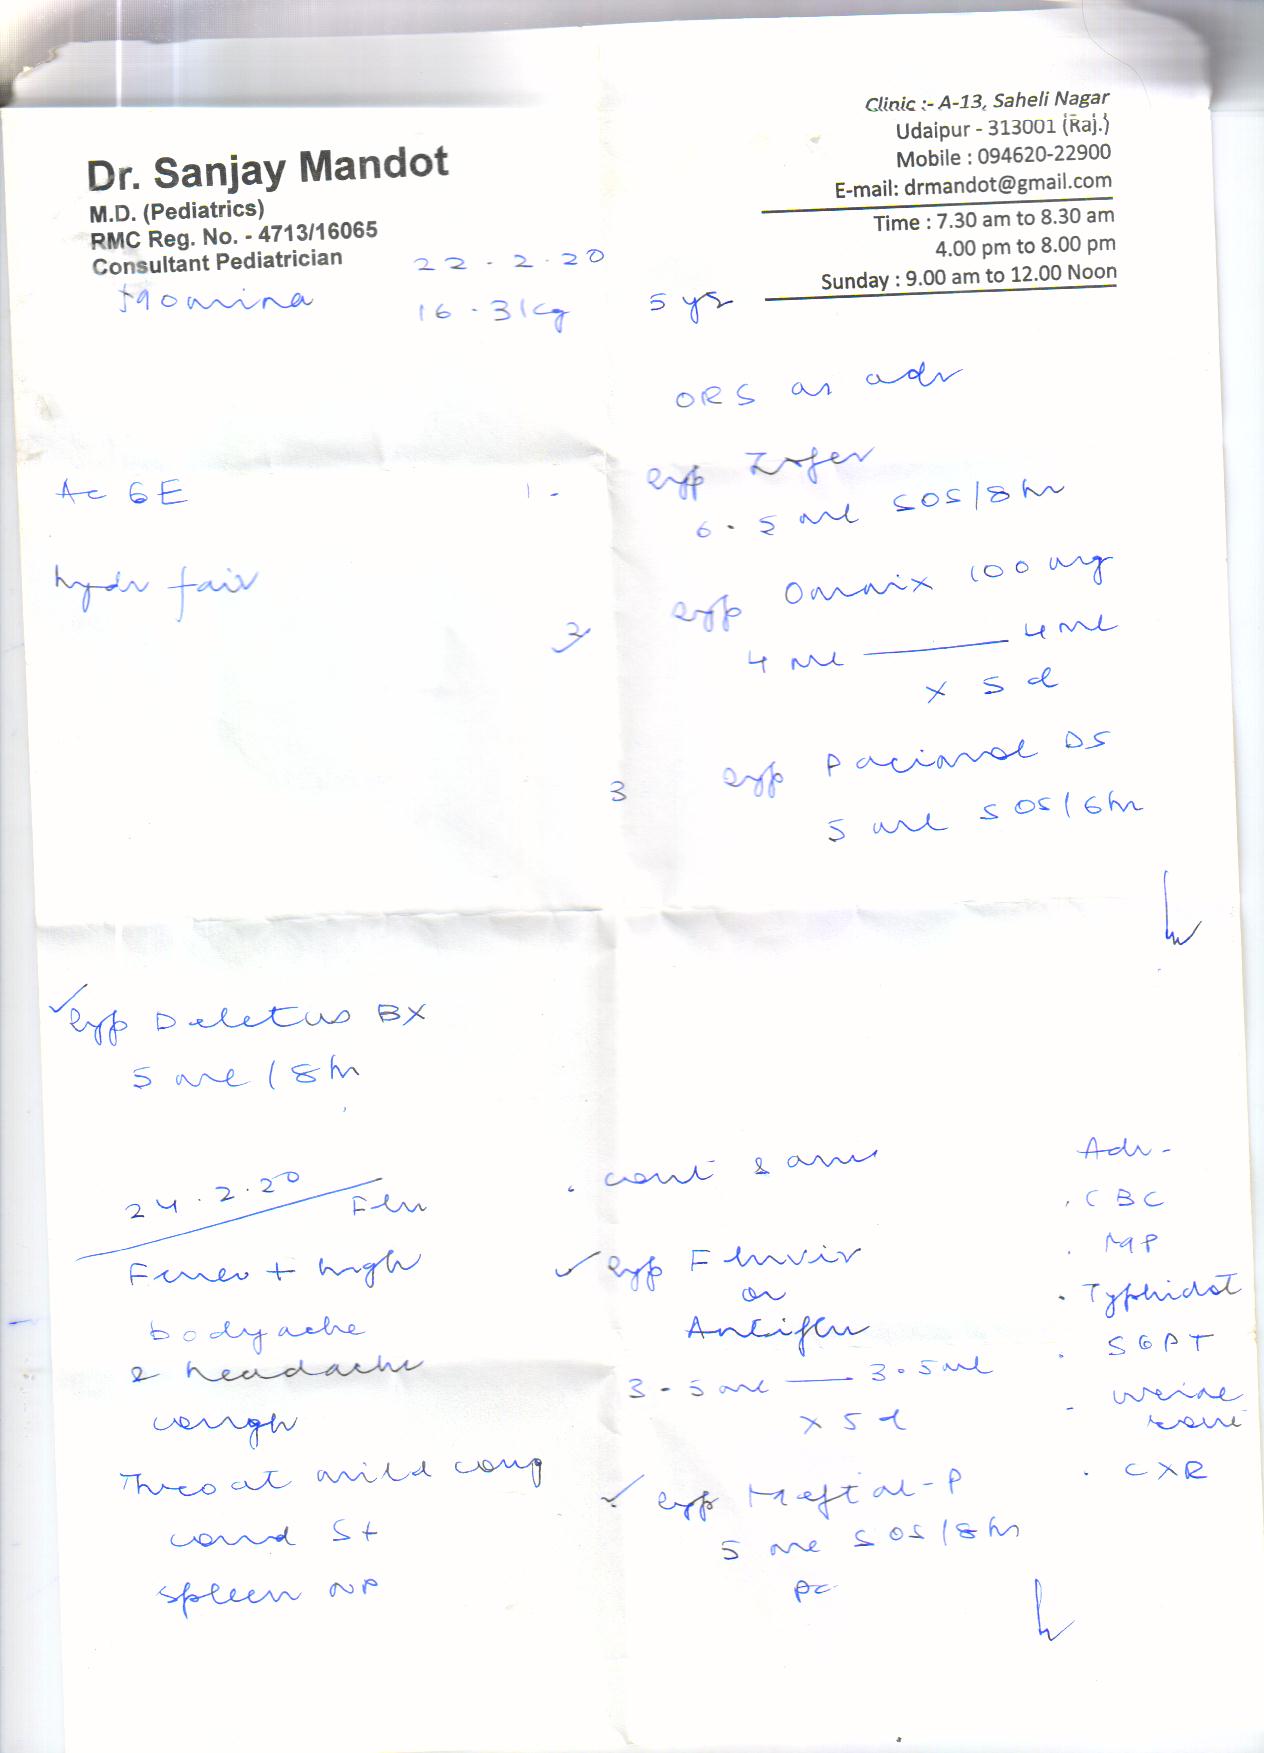 Dr. Sanjay Mandot
M.D. (Pediatrics)
RMC Reg. No. - 4713/16065
Consultant Pediatrician
Clinic :- A-13, Saheli Nagar
Udaipur - 313001 (Raj.)
Mobile : 094620-22900
E-mail: drmandot@gmail.com
Time : 7.30 am to 8.30 am
4.00 pm to 8.00 pm
Sunday : 9.00 am to 12.00 Noon
22.2.20
16.3 kg 5 yr
ORS as adv
Ac GE
hydr fair
1 - Syp Zofer
6.5 ml SOS/8hr
2 Syp Omnix 100 mg
4 ml — 4 ml
x 5 d
3 Syp Pacimol DS
5 ml SOS/6hr
✓ Syp Deletus BX
5 ml / 8hr
24.2.20
Flu
Fever + high
bodyache
& headache
cough
Throat mild cong
cond St
spleen NP
. cont & am
✓ Syp Fluvir
or
Antiflu
3.5 ml — 3.5 ml
x 5 d
✓ Syp Meftal-P
5 ml SOS/8hr
pc
Adv -
. CBC
. MP
. Typhidot
. SGPT
- urine
. CXR